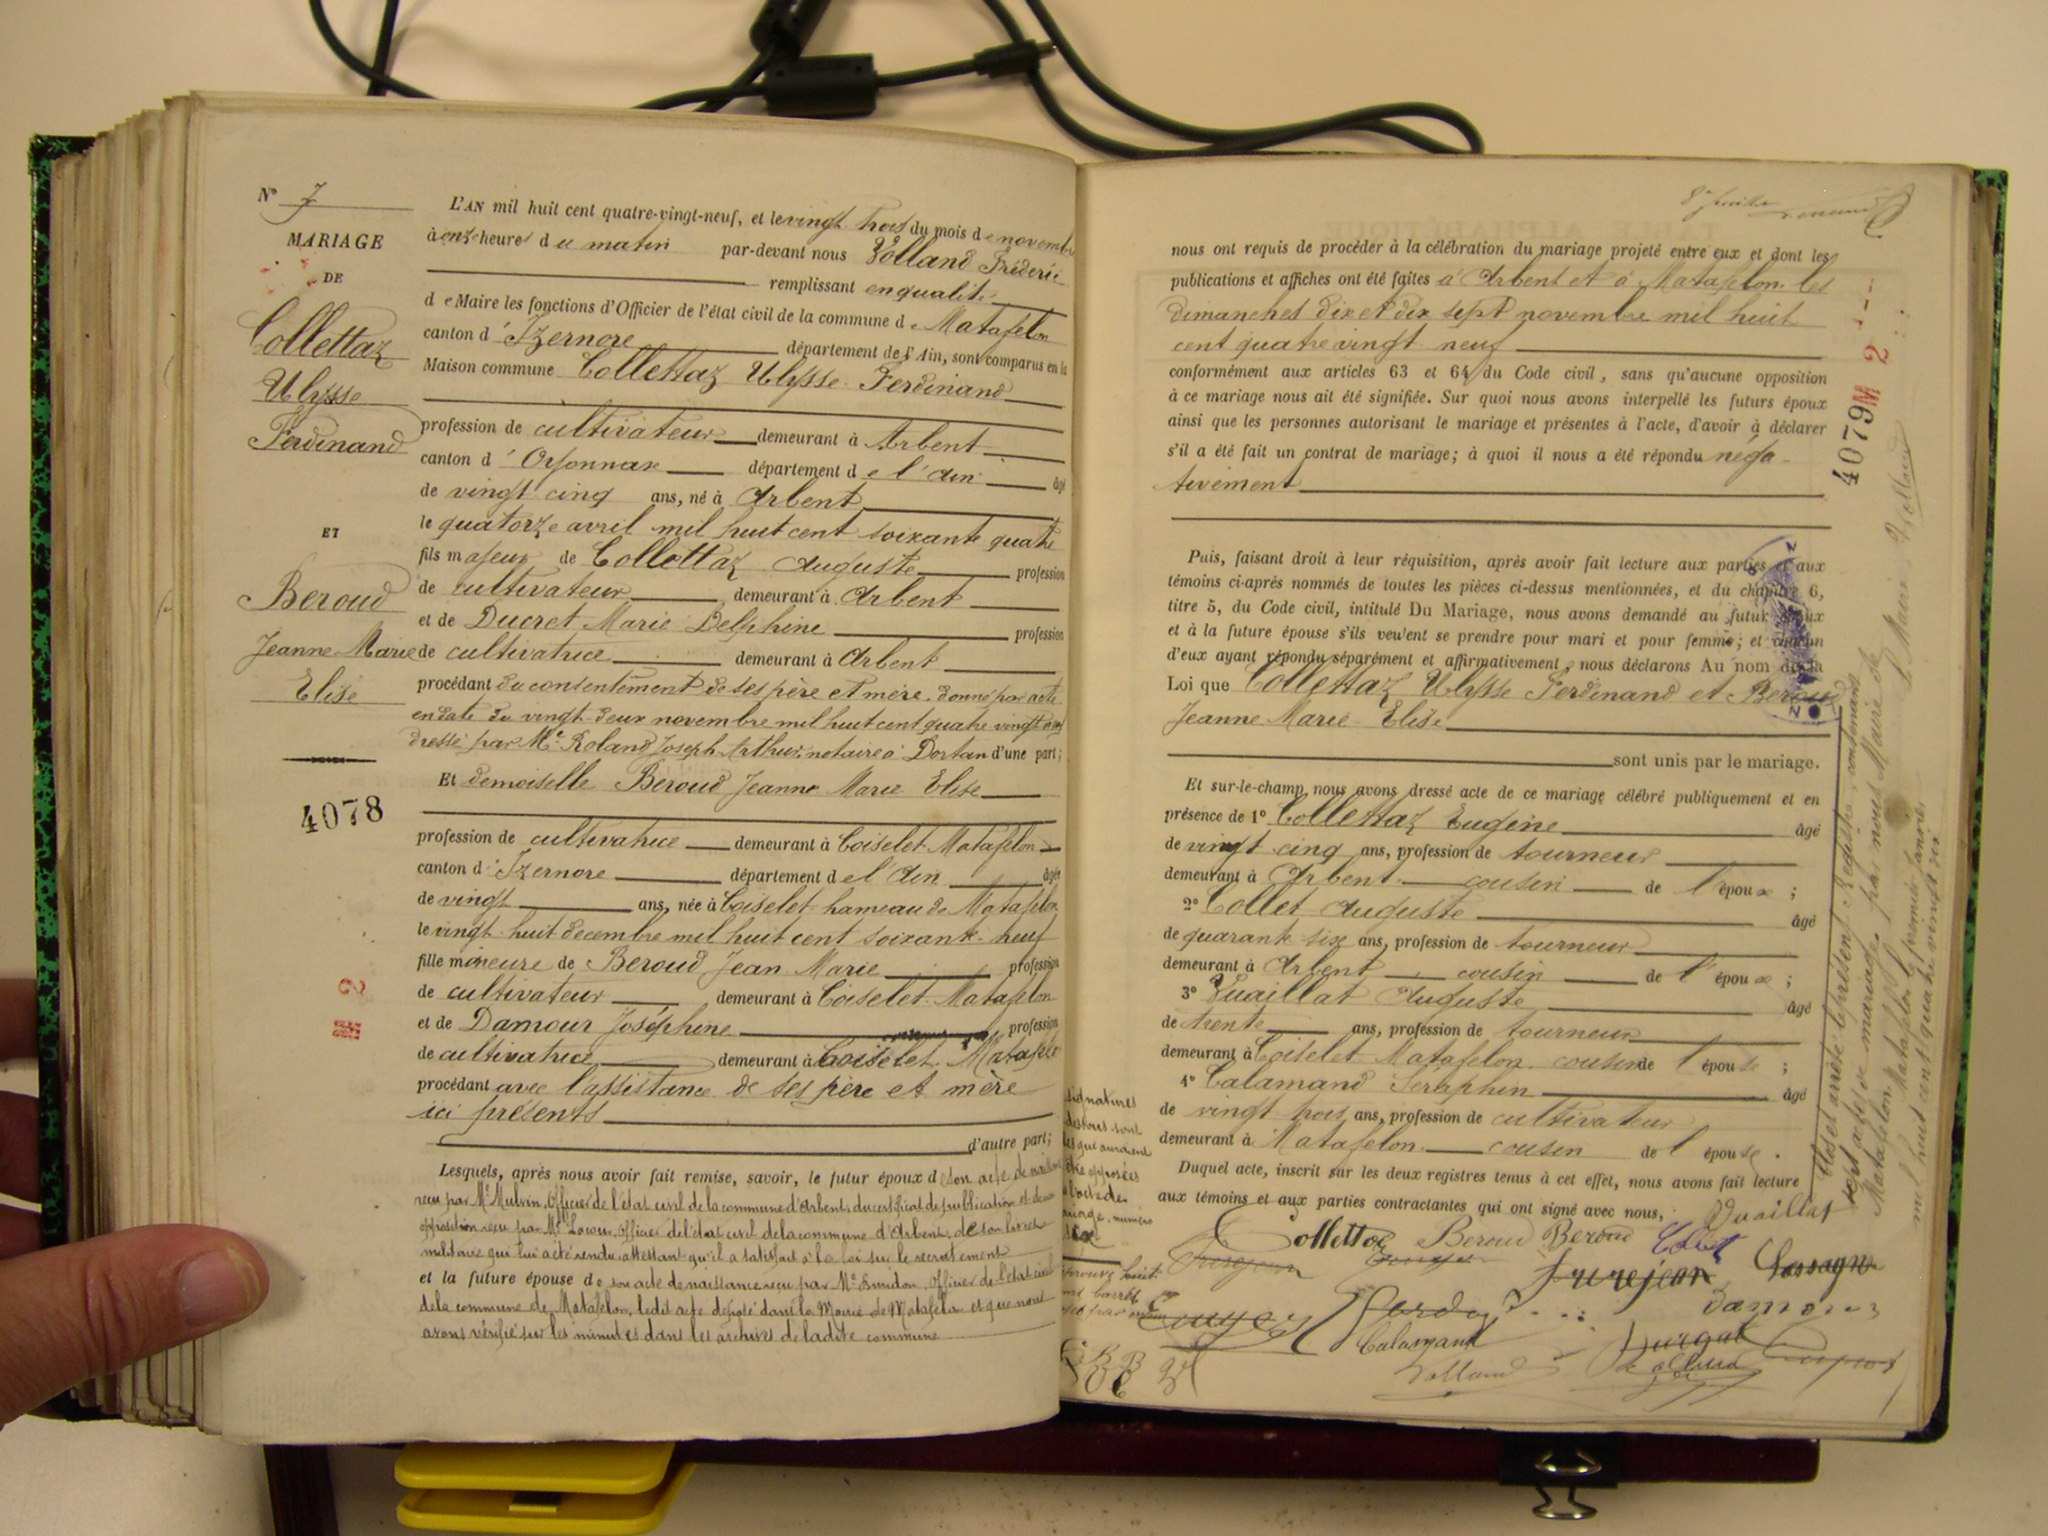 N° 7
MARIAGE
DE
Collettaz
Ulysse
Ferdinand
ET
Beroud
Jeanne Marie
Elise
4078
L'AN mil huit cent quatre-vingt-neuf, et le vingt trois du mois de novembre
à onze heures du matin par-devant nous Volland Fréderic
remplissant en qualité
de Maire les fonctions d'Officier de l'état civil de la commune de Matafelon
canton d'Izernore département de l'Ain, sont comparus en la
Maison commune Collettaz Ulysse Ferdinand
profession de cultivateur demeurant à Arbent
canton d'Oyonnax département de l'Ain âgé
de vingt cinq ans, né à Arbent
le quatorze avril mil huit cent soixante quatre
fils majeur de Collettaz Auguste profession
de cultivateur demeurant à Arbent
et de Ducret Marie Delphine profession
de cultivatrice demeurant à Arbent
procédant du consentement de ses père et mère donné par acte
en date du vingt deux novembre mil huit cent quatre vingt neuf
dressé par Me Roland Joseph Arthur, notaire à Dortan d'une part;
Et demoiselle Beroud Jeanne Marie Elise
profession de cultivatrice demeurant à Coiselet Matafelon
canton d'Izernore département de l'Ain âgée
de vingt ans, née à Coiselet hameau de Matafelon
le vingt huit decembre mil huit cent soixante neuf
fille mineure de Beroud Jean Marie profession
de cultivateur demeurant à Coiselet Matafelon
et de Damour Joséphine profession
de cultivatrice demeurant à Coiselet Matafelon
procédant avec l'assistance de ses père et mère
ici présents
d'autre part;
Lesquels, après nous avoir fait remise, savoir, le futur époux de son acte de naissance
reçu par Mr Officier de l'état civil de la commune d'Arbent, du certificat de publication et de non
opposition reçu par Mr officier de l'état civil de la commune d'Arbent, de son livret
militaire qui lui a été rendu attestant qu'il a satisfait à la loi sur le recrutement
et la future épouse de son acte de naissance reçu par Mr Officier de l'état civil
de la commune de Matafelon, ledit acte déposé dans la Mairie de Matafelon et que nous
avons vérifié sur les minutes dans les archives de ladite commune
nous ont requis de procéder à la célébration du mariage projeté entre eux et dont les
publications et affiches ont été faites à Arbent et à Matafelon les
dimanches dix et dix sept novembre mil huit
cent quatre vingt neuf
conformément aux articles 63 et 64 du Code civil, sans qu'aucune opposition
à ce mariage nous ait été signifiée. Sur quoi nous avons interpellé les futurs époux
ainsi que les personnes autorisant le mariage et présentes à l'acte, d'avoir à déclarer
s'il a été fait un contrat de mariage; à quoi il nous a été répondu néga-
tivement
Puis, faisant droit à leur réquisition, après avoir fait lecture aux parties et aux
témoins ci-après nommés de toutes les pièces ci-dessus mentionnées, et du chapitre 6,
titre 5, du Code civil, intitulé Du Mariage, nous avons demandé au futur époux
et à la future épouse s'ils veulent se prendre pour mari et pour femme; et chacun
d'eux ayant répondu séparément et affirmativement, nous déclarons Au nom de la
Loi que Collettaz Ulysse Ferdinand et Beroud
Jeanne Marie Elise
sont unis par le mariage.
Et sur-le-champ nous avons dressé acte de ce mariage célébré publiquement et en
présence de 1° Collettaz Eugène âgé
de vingt cinq ans, profession de tourneur
demeurant à Arbent cousin de l'époux;
2° Collet Auguste âgé
de quarante six ans, profession de tourneur
demeurant à Arbent cousin de l'époux;
3° Vuaillat Auguste âgé
de trente ans, profession de tourneur
demeurant à Coiselet Matafelon cousin de l'épouse;
4° Calamand Séraphin âgé
de vingt trois ans, profession de cultivateur
demeurant à Matafelon cousin de l'épouse.
Duquel acte, inscrit sur les deux registres tenus à cet effet, nous avons fait lecture
aux témoins et aux parties contractantes qui ont signé avec nous,
Vuaillat
Collettaz Beroud Beroud Collet
Calamand
Volland
4079
M 2
Clos et arrêté le présent Registre contenant
sept actes de mariage, par nous Maire de
Matafelon
Matafelon le premier janvier
mil huit cent quatre vingt dix
Le Maire Volland